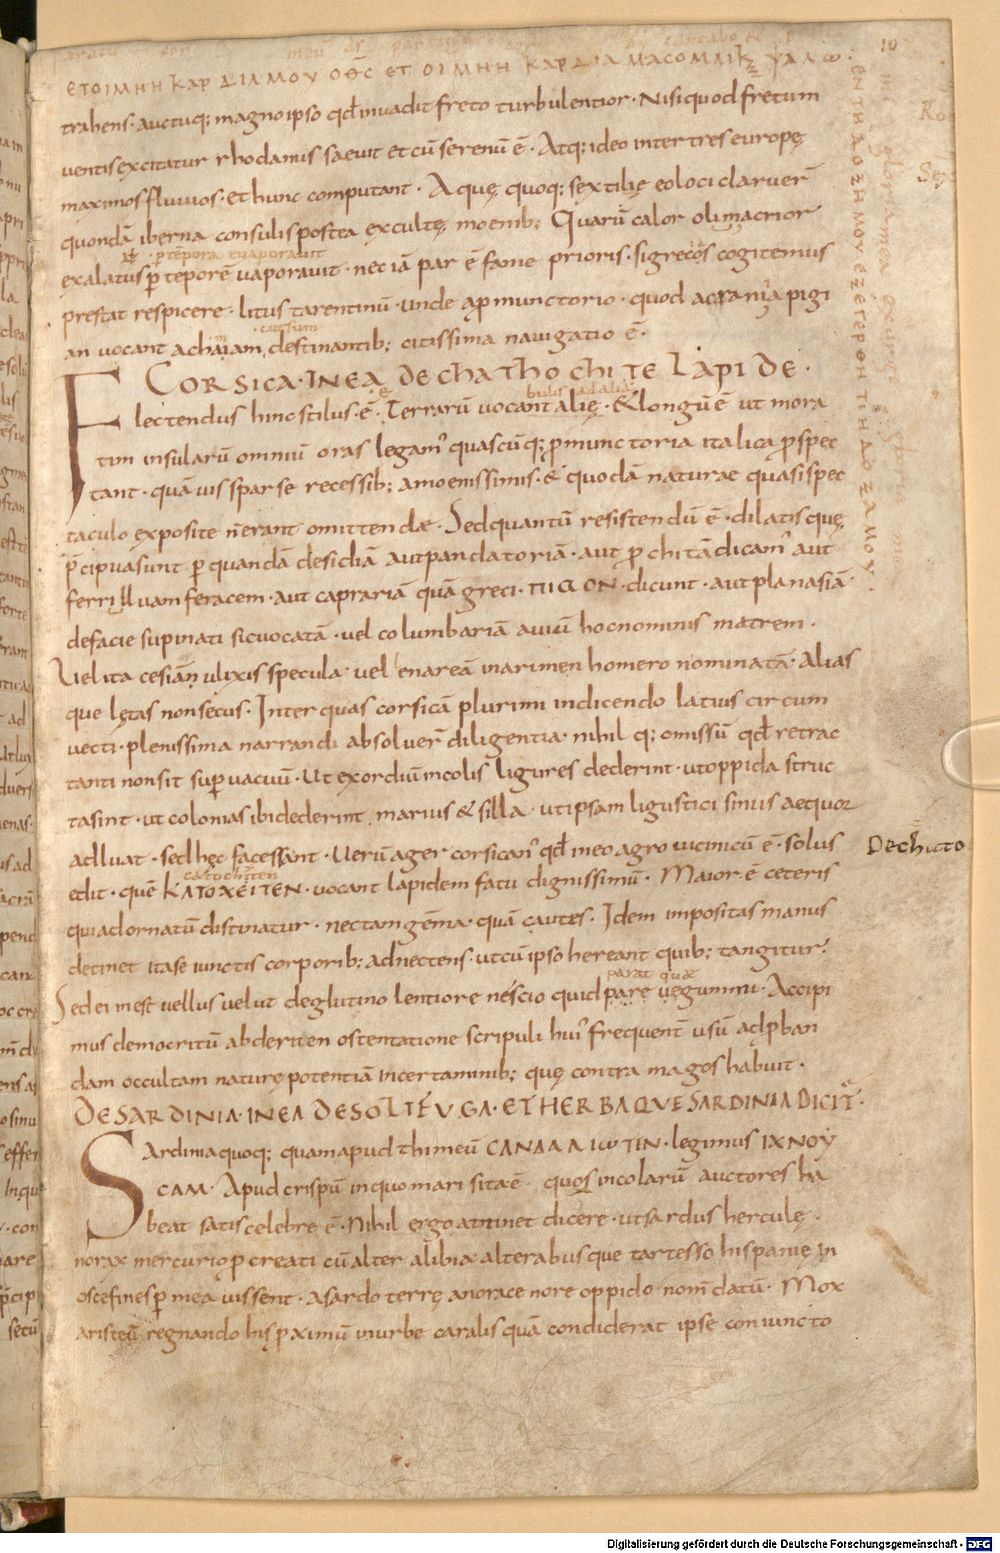 ετοιμηη καρδια μου οθς ετοιμηη καρδια μα
trahens · auctuq; magno ipso qđ invadit freto turbulentior · Nisi quod fretum
ventis excitatur rhodanus saevit et cū serenū ē · Atq; ideo inter tres europę
maximos fluvios · et hunc computant · Aquę quoq; sextilię eo loci claruer̄
quondā iberna consulis postea excultę moenib; Quarū calor olim acrior
p tēpora evaporavit
exalatus p̄ temporē vaporavit · nec iā par ē fame prioris · si grecos cogitemus
prestat respicere · litus tarentinū · unde a promunctorio · quod
an vocant achaiam destinantib; citissima navigatio ē ·
CORSICA · IN EA DE CHATHOCHITE LAPIDE ·
Flectendus hinc stilus · ē · Terrarū vocant alię · & longū ē ut mora
tim insularū omniū oras legam' quascūq; promunctoria italica prospec
tant · quāvis sparse recessib; amoenissimis · & quodā naturae quasi spec
taculo exposite n̄ erant omittendae · Sed quantū resistendū ē · dilatis quę
p̄cipua sunt p quandā desidiā aut pandatoriā · aut prochitā dicam' aut
ferri Iluam feracem · aut caprariā quā greci · dicunt · aut planasiā
de facie supinati sic vocatā · vel columbariā aviū hoc nominis matrem ·
Vel itacesiān ulixis specula vel enareā inarimen homero nominatā · Alias
que lętas non secus · Inter quas corsicā plurimi in dicendo latius circum
vecti · plenissima narrandi absolver̄ diligentia · nihil q; omissū qđ retrac
tanti non sit supervacuū · Ut exordiū incolis ligures dederint · ut oppida struc
ta sint · ut colonias ibi dederint marius & silla · ut ipsam ligustici sinus aequor
adluat · sed hęc facessant · Verū ager corsican' qđ in eo agro unicū ē · solus
De chacto
catochiten
edit · quē ΚΑΤΟΧΕΙΤΕΝ · vocant lapidem fatu dignissimū · Maior ē ceteris
qui ad ornatū distinatur · nec tam gēma · quā cautes · Idem impositas manus
detinet ita se iunctis corporib; adnectens · ut cū ipso hereant quib; tangitur ·
parat quae
Sed ei inest vellus velut de glutino lentiore nescio quid pare vegummi · Accipi
mus democritū abderiten ostentatione scripuli hui' frequent̄ usū ad p̄ban
dam occultam naturę potentiā in certaminib; quę contra magos habuit ·
DE SARDINIA · IN EA DE SOLIFUGA · ET HERBA QUE SARDINIA DICIT̄ ·
Sardinia quoq; quam apud thimeū CANΔAΛIωTIN · legimus IXNOY
CAM · Apud crispū in quo mari sita ē · quos incolarū auctores ha
beat satis celebre ē · Nihil ergo attinet dicere · ut sardus herculę ·
norax mercurio p creati cū alter a libia alter ab usque tartesso hispanię in
oscefines p mea vissent · a sardo terrę a norace nore oppido nom̄ datū · Mox
aristeū regnando his p ximū in urbe caralis quā condiderat ipse coniuncto
Digitalisierung gefördert durch die Deutsche Forschungsgemeinschaft - DFG